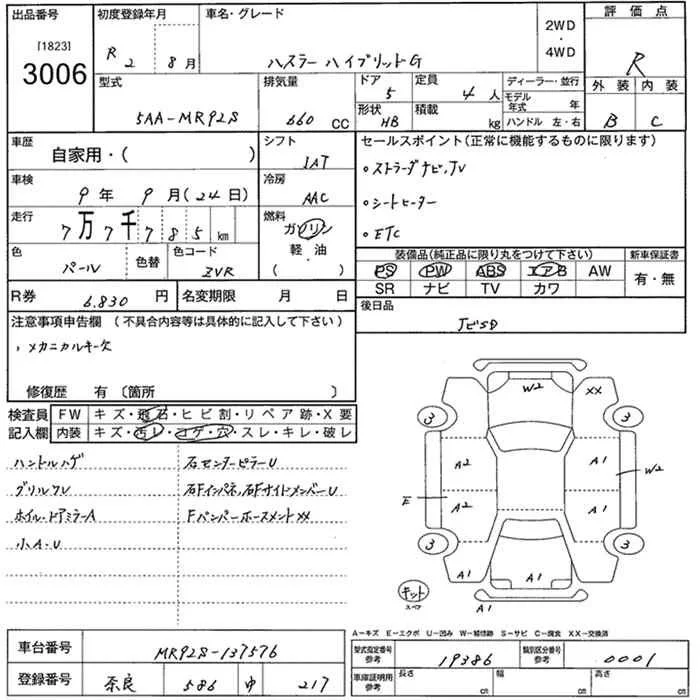 出品番号 [1823] 3006
初度登録年月 R 2 年 8月
車名・グレード ハスラー ハイブリッドG
2WD・4WD
評価点 R
型式 5AA-MR92S
排気量 660 CC
ドア 5
定員 4人
形状 HB
積載 kg
ディーラー・並行
モデル年式 年
ハンドル 左・右
外装 B
内装 C
車歴 自家用・( )
シフト IAT
セールスポイント(正常に機能するものに限ります)
・ストラーダナビ,TV
・シートヒーター
・ETC
車検 9年 9月(24日)
冷房 AAC
走行 7万7千785km
燃料 ガソリン 軽・油 ( ・ )
色 パール
色替
色コード ZVR
装備品(純正品に限り丸をつけて下さい)
PS PW ABS エアB AW
SR ナビ TV カワ
新車保証書 有・無
R券 6.830 円
名変期限 月 日
後日品 ナビSD
注意事項申告欄 (不具合内容等は具体的に記入して下さい)
、メカニカルキー欠
修復歴 有 〔箇所 〕
検査員記入欄
FW キズ・飛石・ヒビ割・リペア跡・X要
内装 キズ・汚レ・コゲ・穴・スレ・キレ・破レ
ハンドルハゲ
グリルワレ
ホイル・ドアミラーA
小A・U
右センターピラーU
右Fインパネ,右FサイドメンバーU
FバンパーホースメントXX
W2 XX
3 3
A2 A1 W2
F A2 A1
3 3
A1 A1 A1
キット スペア
A1
A－キズ E－エクボ U－凹み W－補修跡 S－サビ C－腐食 XX－交換済
車台番号 MR92S-137576
登録番号 奈良 586 ゆ 217
型式指定番号 参考 19386
類別区分番号 参考 0001
車庫証明用 参考 長さ cm 幅 cm 高さ cm